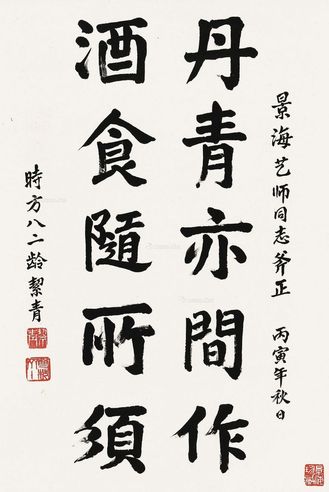 景海艺师同志斧正 丙寅年秋日
丹青亦間作
酒食隨所須
時方八二龄絜青